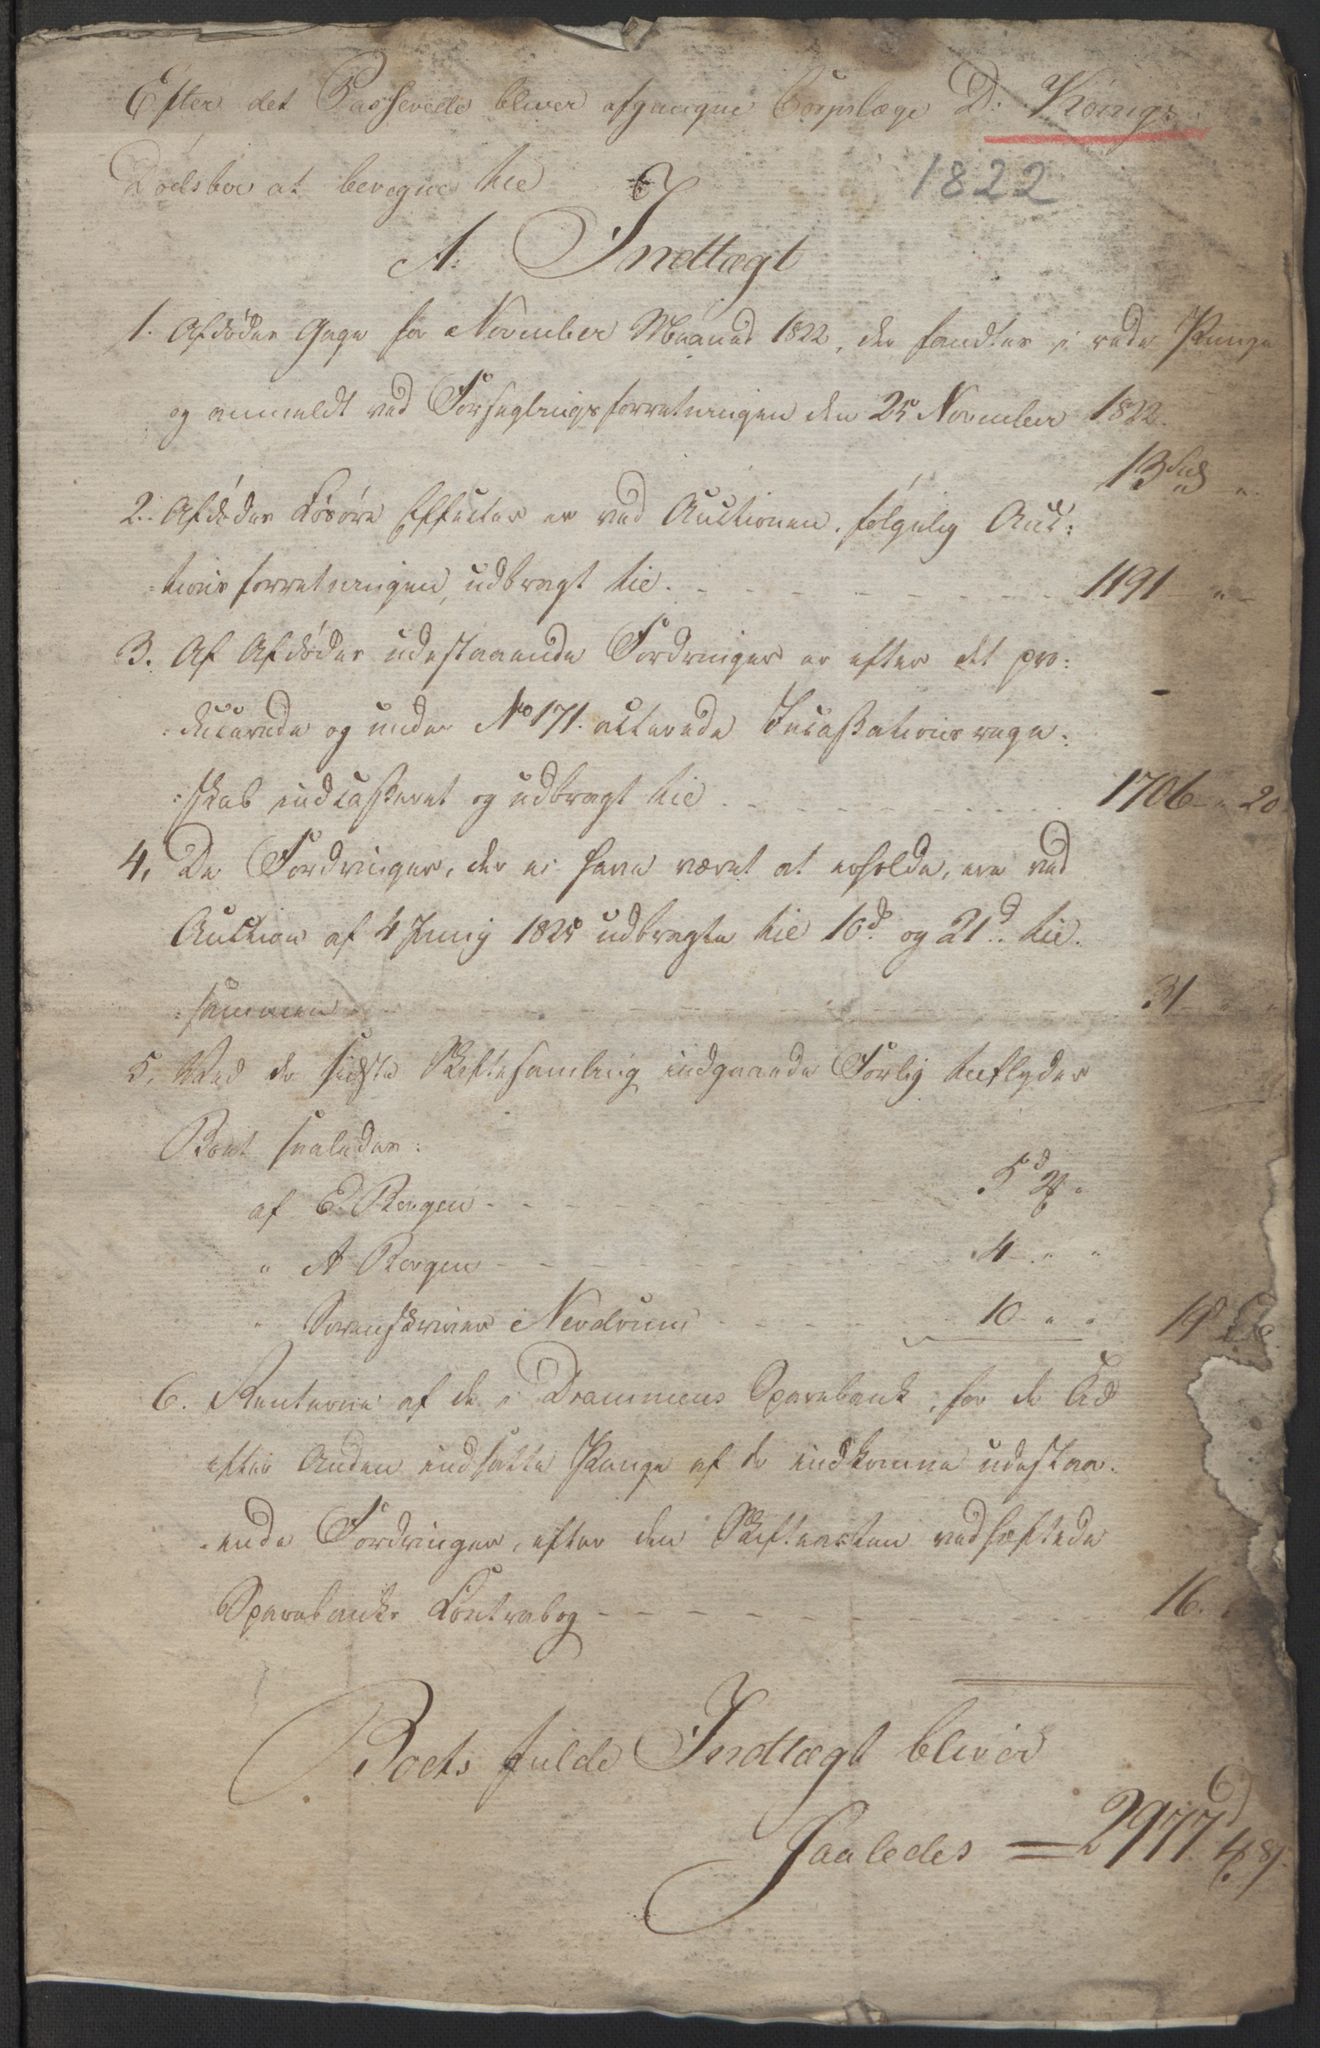 Efter det Passerede bliver afgangne Corpslæge D: Königs
Dødsboe at beregne til
1822
A: Indtægt
1. Afdødes Gage for November Maaned 1822, der fandtes i rede Penge
og anmeldt ved Forseglingsforretningen den 25 November 1822.
13
2. Afdødes Løsøre Effecter er ved Auctionen, følgelig Auc:
:tionsforretningen, udbragt til. 1191 " "
3. Af Afdødes udestaaende Fordringer er efter det pro:
:ducerede og under No 171. acterede Incassations regn:
:skab indcasseret og udbragt til 1706 " 20
4. De Fordringer, der ei have været at erholde, ere ved
Auction af 4 Junij 1825 udbragte til 10d. og 21d. til:
:sammen 31 " "
5. Ved de sidste Skiftesamling indgaaede Forlig tilflyder
Boet saaledes:
af E. Borgen 5d "
" A Borgen 4 " "
" Sorenskriver Nerdrum 10 " " 19d
6. Renterne af de i Drammens Sparebank, for de Tid
efter Anden indsatte Penge af de indkomne udestaa:
:ende Fordringer, efter den Skifteacten vedhæftede
Sparebanks Contrabog 16.
Boets fulde Indtægt bliver
Saaledes = 2977d 4 8